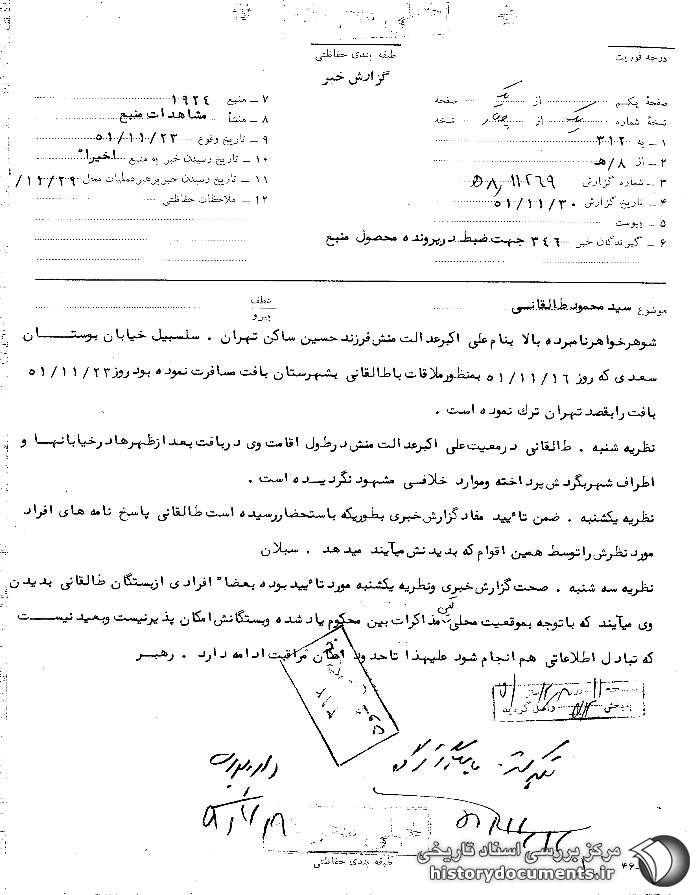 درجه فوریت
طبقه بندی حفاظتی
گزارش خبر
صفحهٔ یکم از یک صفحه
نسخهٔ شماره یک از چهار نسخه
۱ - به ۳۱۲
۲ - از ۸/هـ
۳ - شماره گزارش ۱۱۲۶۹/۵۸
۴ - تاریخ گزارش ۵۱/۱۱/۳۰
۵ - پیوست
۶ - گیرندگان خبر ۳۴۶ جهت ضبط در پرونده محصول منبع
۷ - منبع ۱۹۲۴
۸ - منشأ مشاهدات منبع
۹ - تاریخ وقوع ۵۱/۱۱/۲۳
۱۰ - تاریخ رسیدن خبر به منبع اخیرا"
۱۱ - تاریخ رسیدن خبر برهبر عملیات محل ۱۱/۲۹/
۱۲ - ملاحظات حفاظتی
موضوع سید محمود طالقانی
عطف
پیرو
شوهر خواهر نامبرده بالا بنام علی اکبر عدالت منش فرزند حسین ساکن تهران . سلسبیل خیابان بوستان
سعدی که روز ۵۱/۱۱/۱۶ بمنظور ملاقات با طالقانی بشهرستان بافت مسافرت نموده بود روز ۵۱/۱۱/۲۳
بافت را بقصد تهران ترک نموده است .
نظریه شنبه . طالقانی در معیت علی اکبر عدالت منش در طول اقامت وی در بافت بعد از ظهرها در خیابانها و
اطراف شهر بگردش پرداخته و موارد خلافی مشهود نگردیده است .
نظریه یکشنبه . ضمن تائید مفاد گزارش خبری بطوریکه باستحضار رسیده است طالقانی پاسخ نامه های افراد
مورد نظرش را توسط همین اقوام که بدیدنش میآیند میدهد . سبلان
نظریه سه شنبه . صحت گزارش خبری و نظریه یکشنبه مورد تائید بوده بعضا" افرادی از بستگان طالقانی بدیدن
وی میآیند که با توجه بموقعیت محلی نفی مذاکرات بین محکوم یاد شده و بستگانش امکان پذیر نیست و بعید نیست
که تبادل اطلاعاتی هم انجام شود علیهذا تا حدود امکان مراقبت ادامه دارد . رهبر
۳۱۲
طبقه بندی حفاظتی
مرکز بررسی اسناد تاریخی
historydocuments.ir